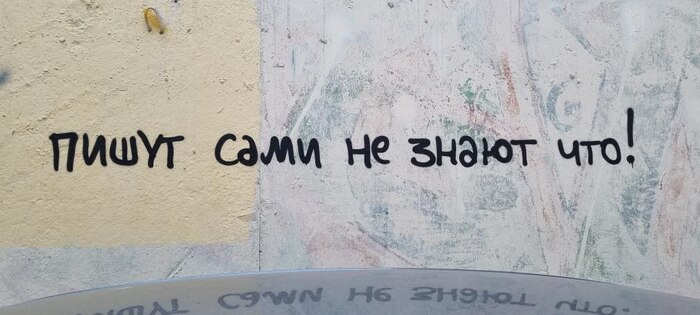 пишут сами не знают что!